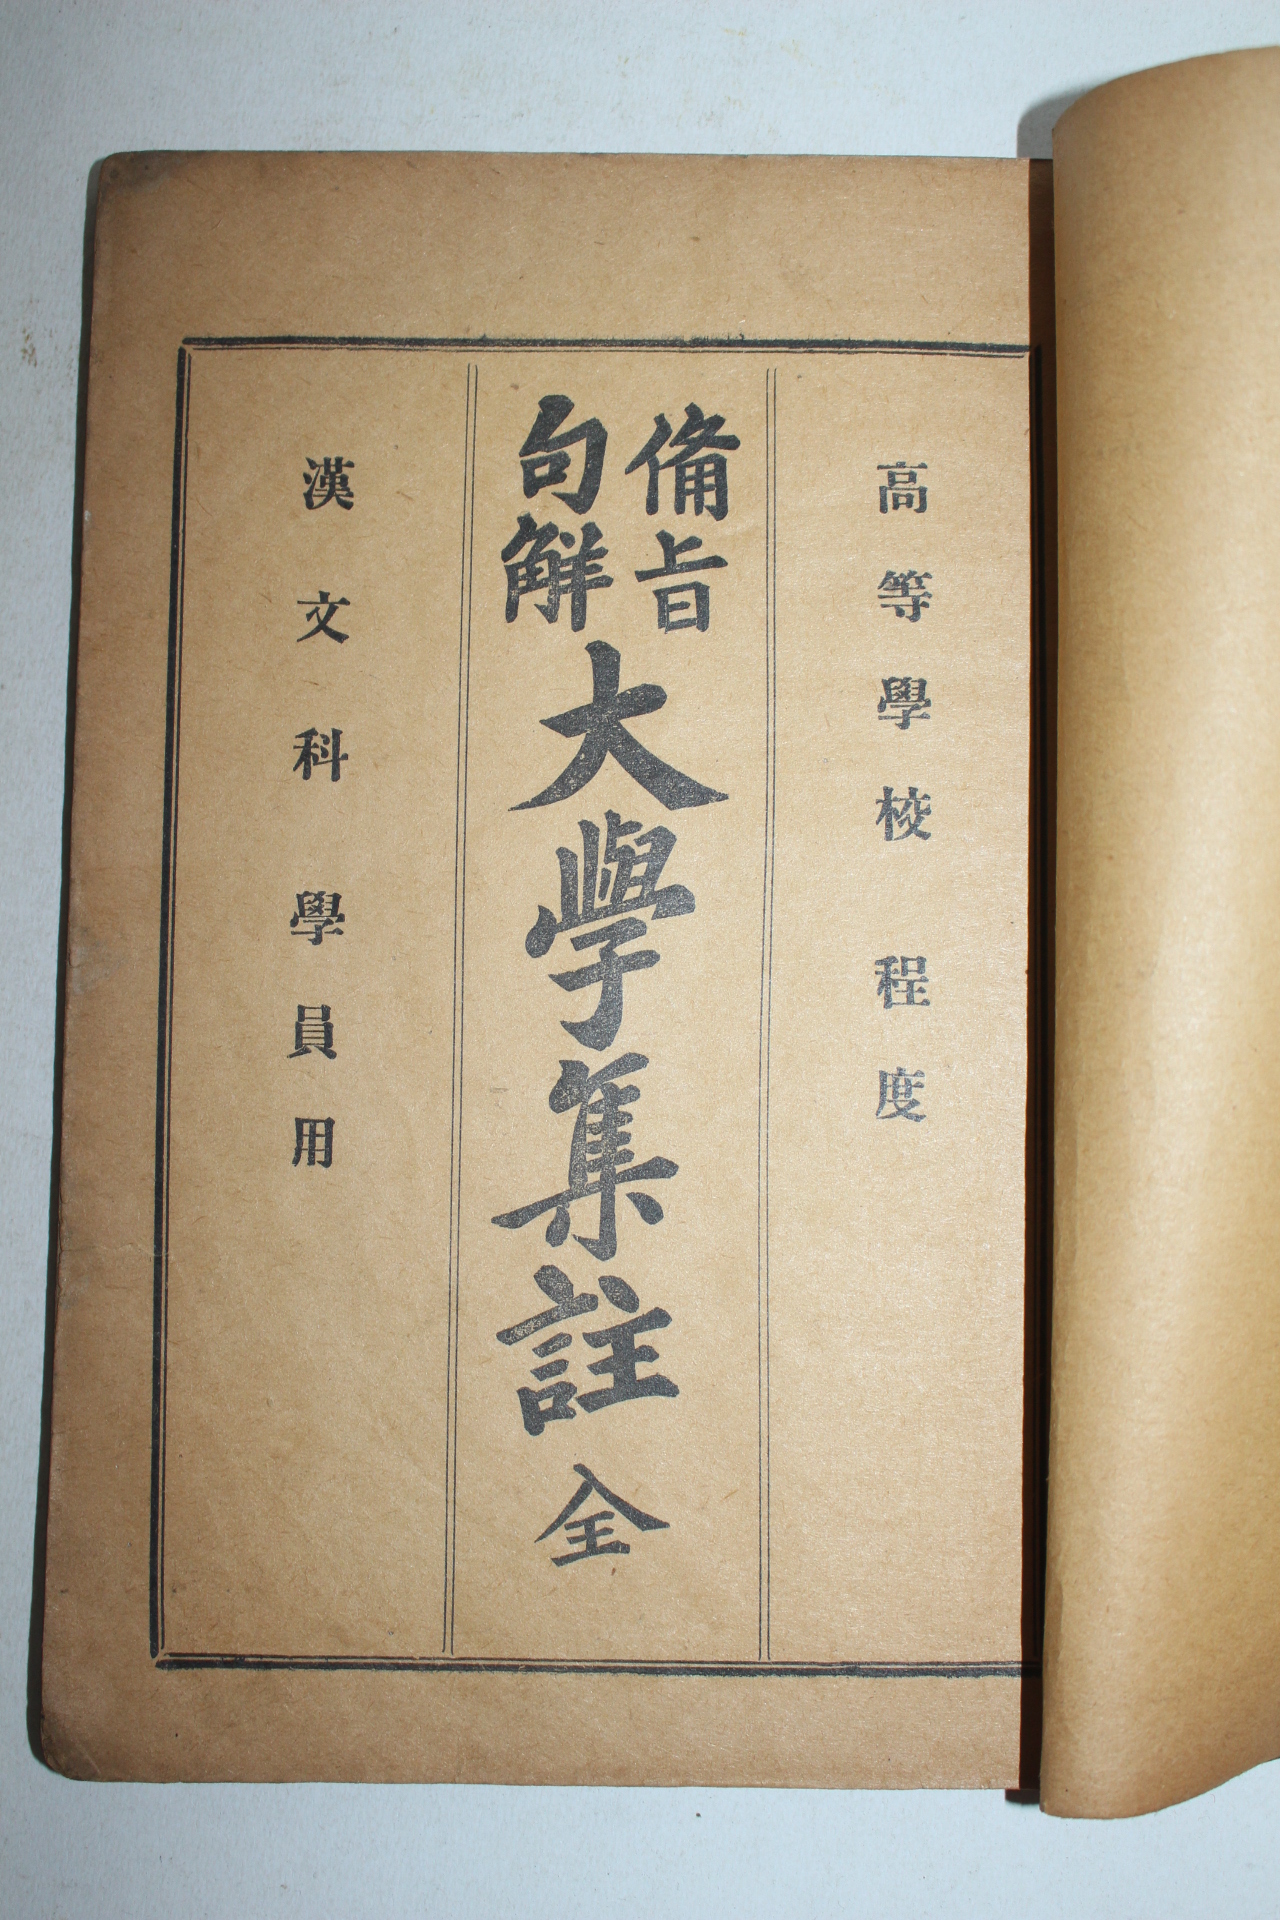 高等學校程度
備旨
句解
大學集註全
漢文科學員用